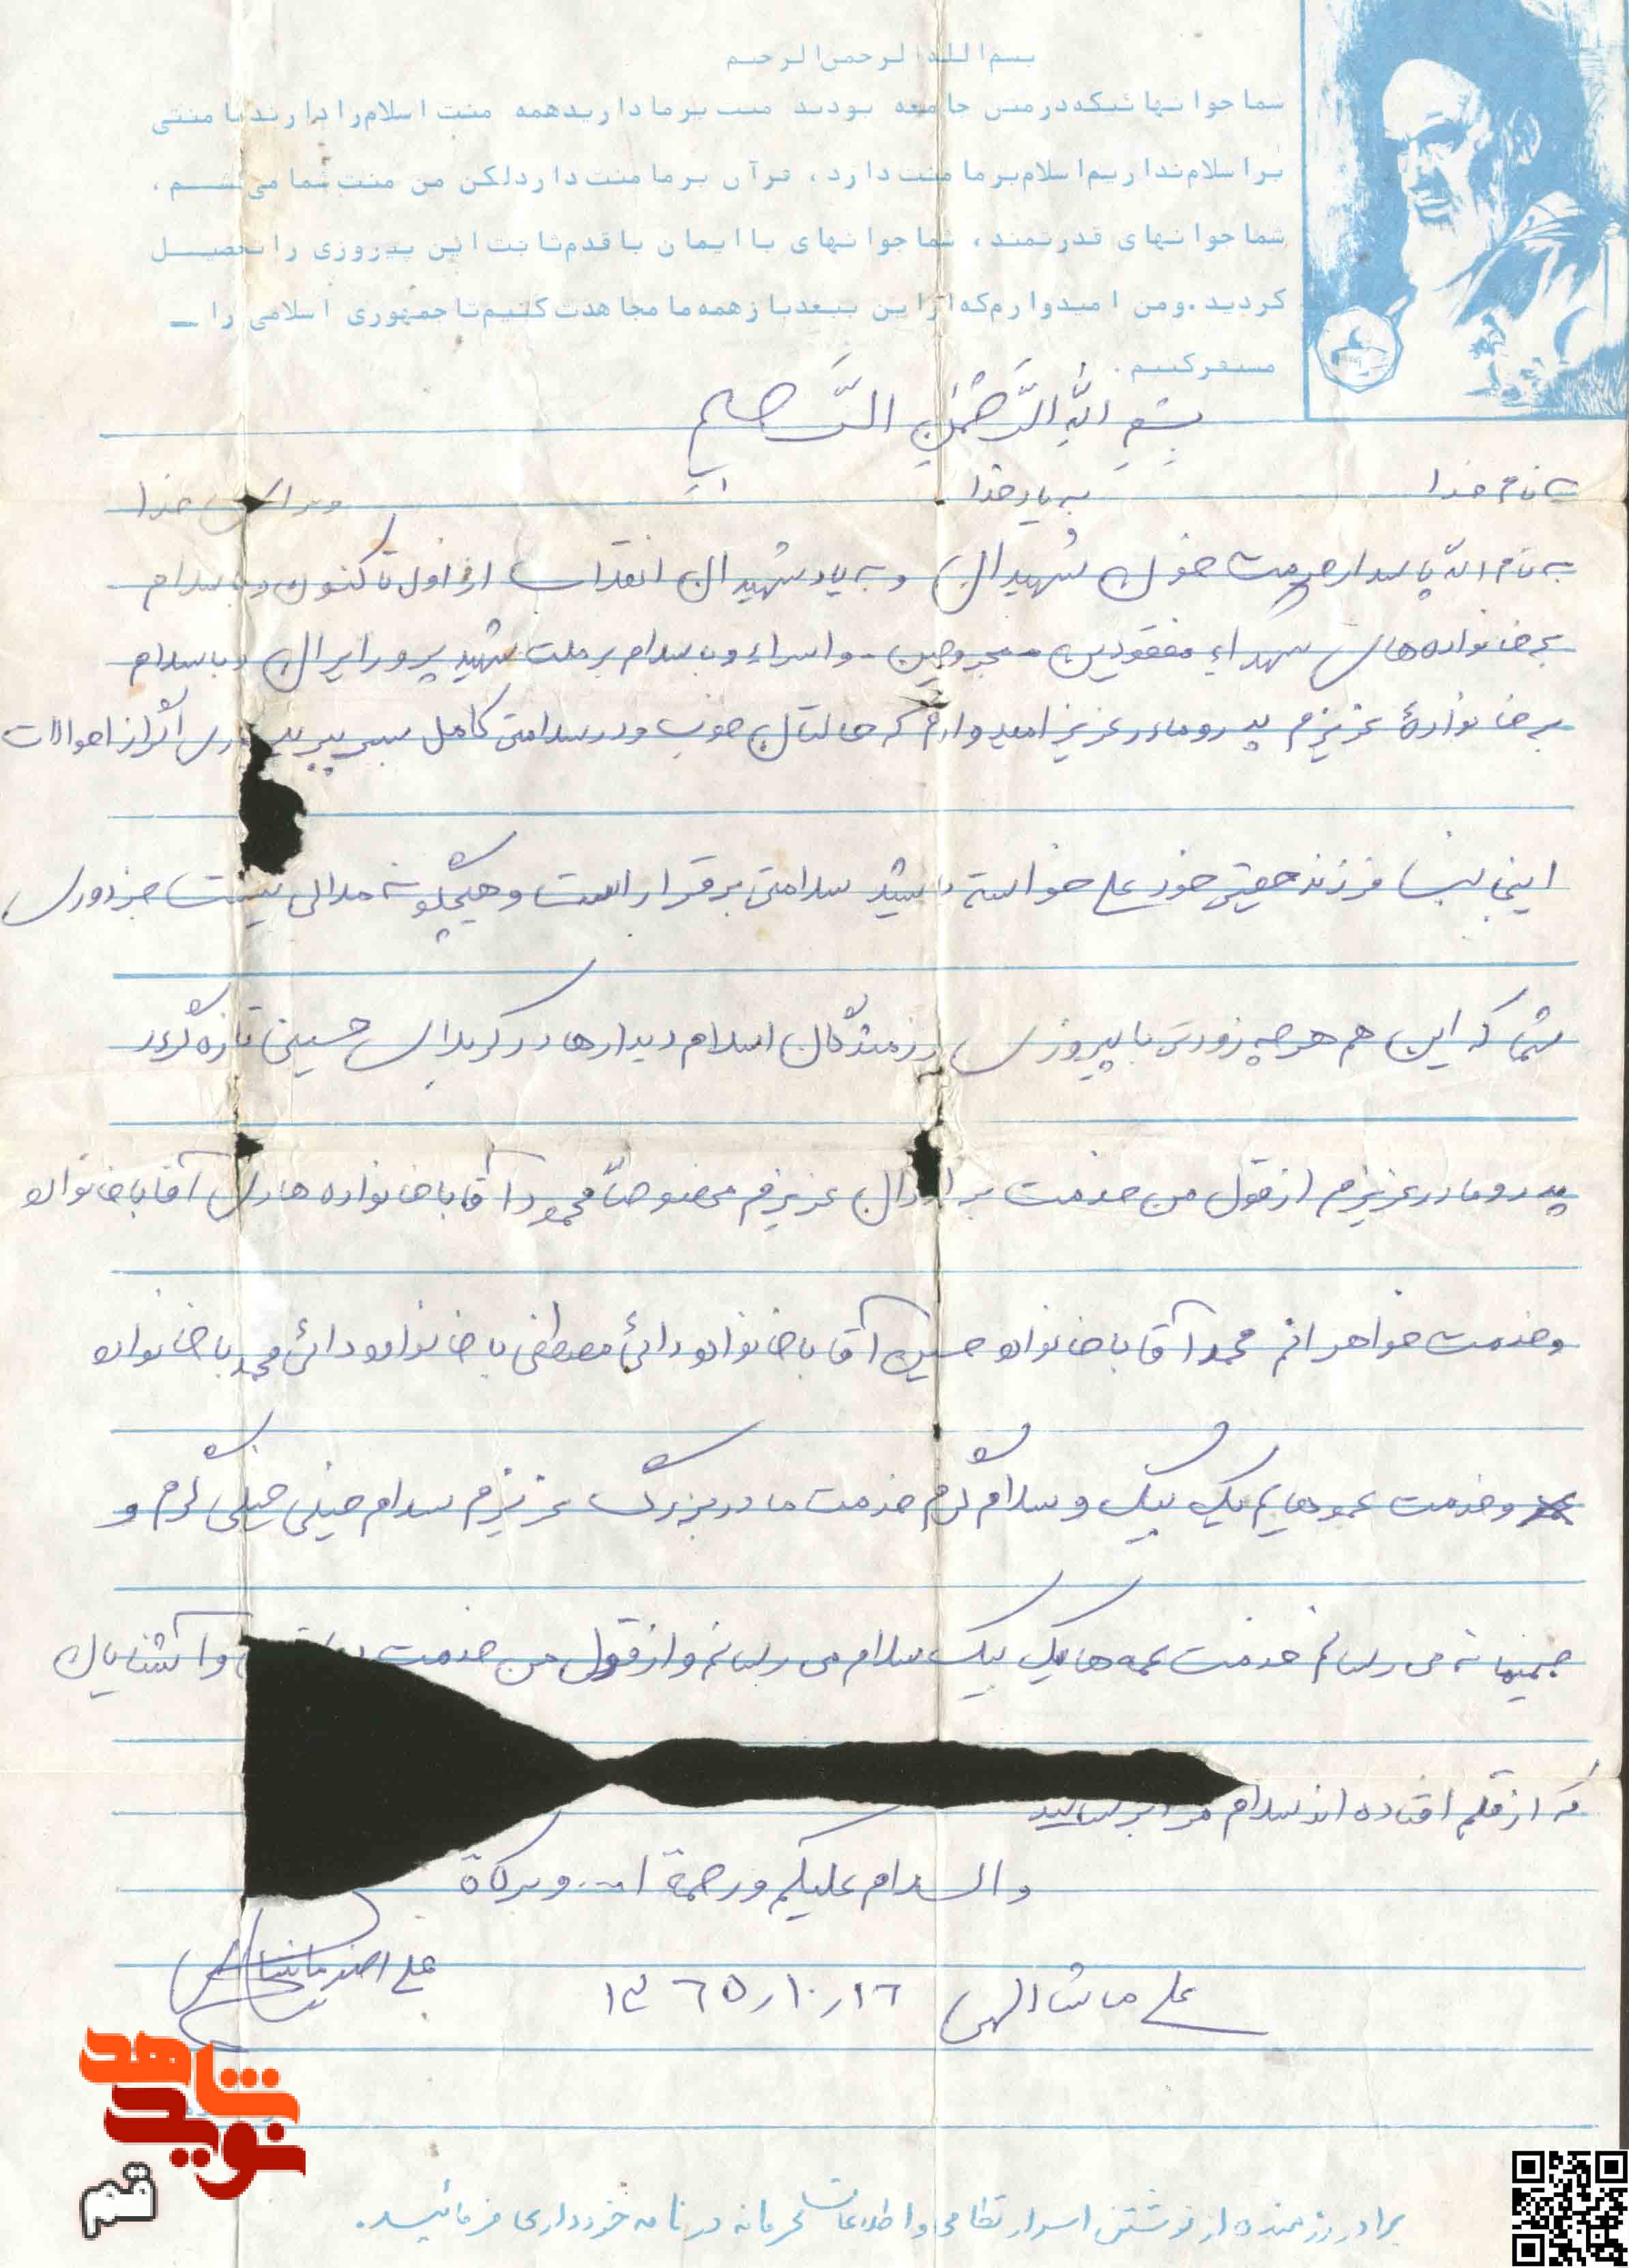 بسم الله الرحمن الرحیم
شما جوانهائیکه در متن جامعه بودید منت بر ما دارید همه منت اسلام را دارند ما منتی
بر اسلام نداریم اسلام بر ما منت دارد ، قرآن بر ما منت دارد لکن من منت شما می‌کشم ،
شما جوانهای قدرتمند ، شما جوانهای با ایمان با قدم ثابت این پیروزی را تحصیل
کردید . و من امیدوارم که از این ببعد باز همه ما مجاهدت کنیم تا جمهوری اسلامی را
مستقر کنیم .
بِسْمِ اللهِ الرَّحْمٰنِ الرَّحیمِ
بنام خدا به یاد خدا و برای خدا
به نام الله پاسدار حرمت خون شهیدان و به یاد شهیدان انقلاب از اول تاکنون و با سلام
بر خانواده‌های شهداء مفقودین - مجروحین - و اسراء و با سلام بر ملت شهید پرور ایران و با سلام
بر خانوادهٔ عزیزم پدر و مادر عزیز امیدوارم که حالتان خوب و در سلامتی کامل بسر ببرید اگر از احوالات
اینجانب فرزند حقیر خود علی خواسته باشید سلامتی برقرار است و هیچگونه ملالی نیست جز دوری
شما که این هم هرچه زودتر با پیروزی رزمندگان اسلام دیدارها در کربلای حسینی تازه گردد
پدر و مادر عزیزم از قول من خدمت برادران عزیزم مخصوصاً محمود آقا با خانواده هادی آقا با خانواده
و خدمت خواهرانم محمد آقا با خانواده حسین آقا با خانواده دائی مصطفی با خانواده دائی محمد با خانواده
و خدمت عموهایم یک یک و سلام گرم خدمت مادربزرگ عزیزم سلام خیلی خیلی گرم و
صمیمانه می رسانم خدمت عمه‌ها یک یک سلام می رسانم و از قول من خدمت و آشنایان
که از قلم افتاده اند سلام مرا برسانید
والسلام علیکم و رحمة ا... و برکاة
علی ماشاالهی ۱۳۶۵/۱۰/۱۶
علی اصغر ماشاالهی
شاهد
نوید
قم
برادر رزمنده از نوشتن اسرار نظامی و اطلاعات محرمانه در نامه خودداری فرمائید .